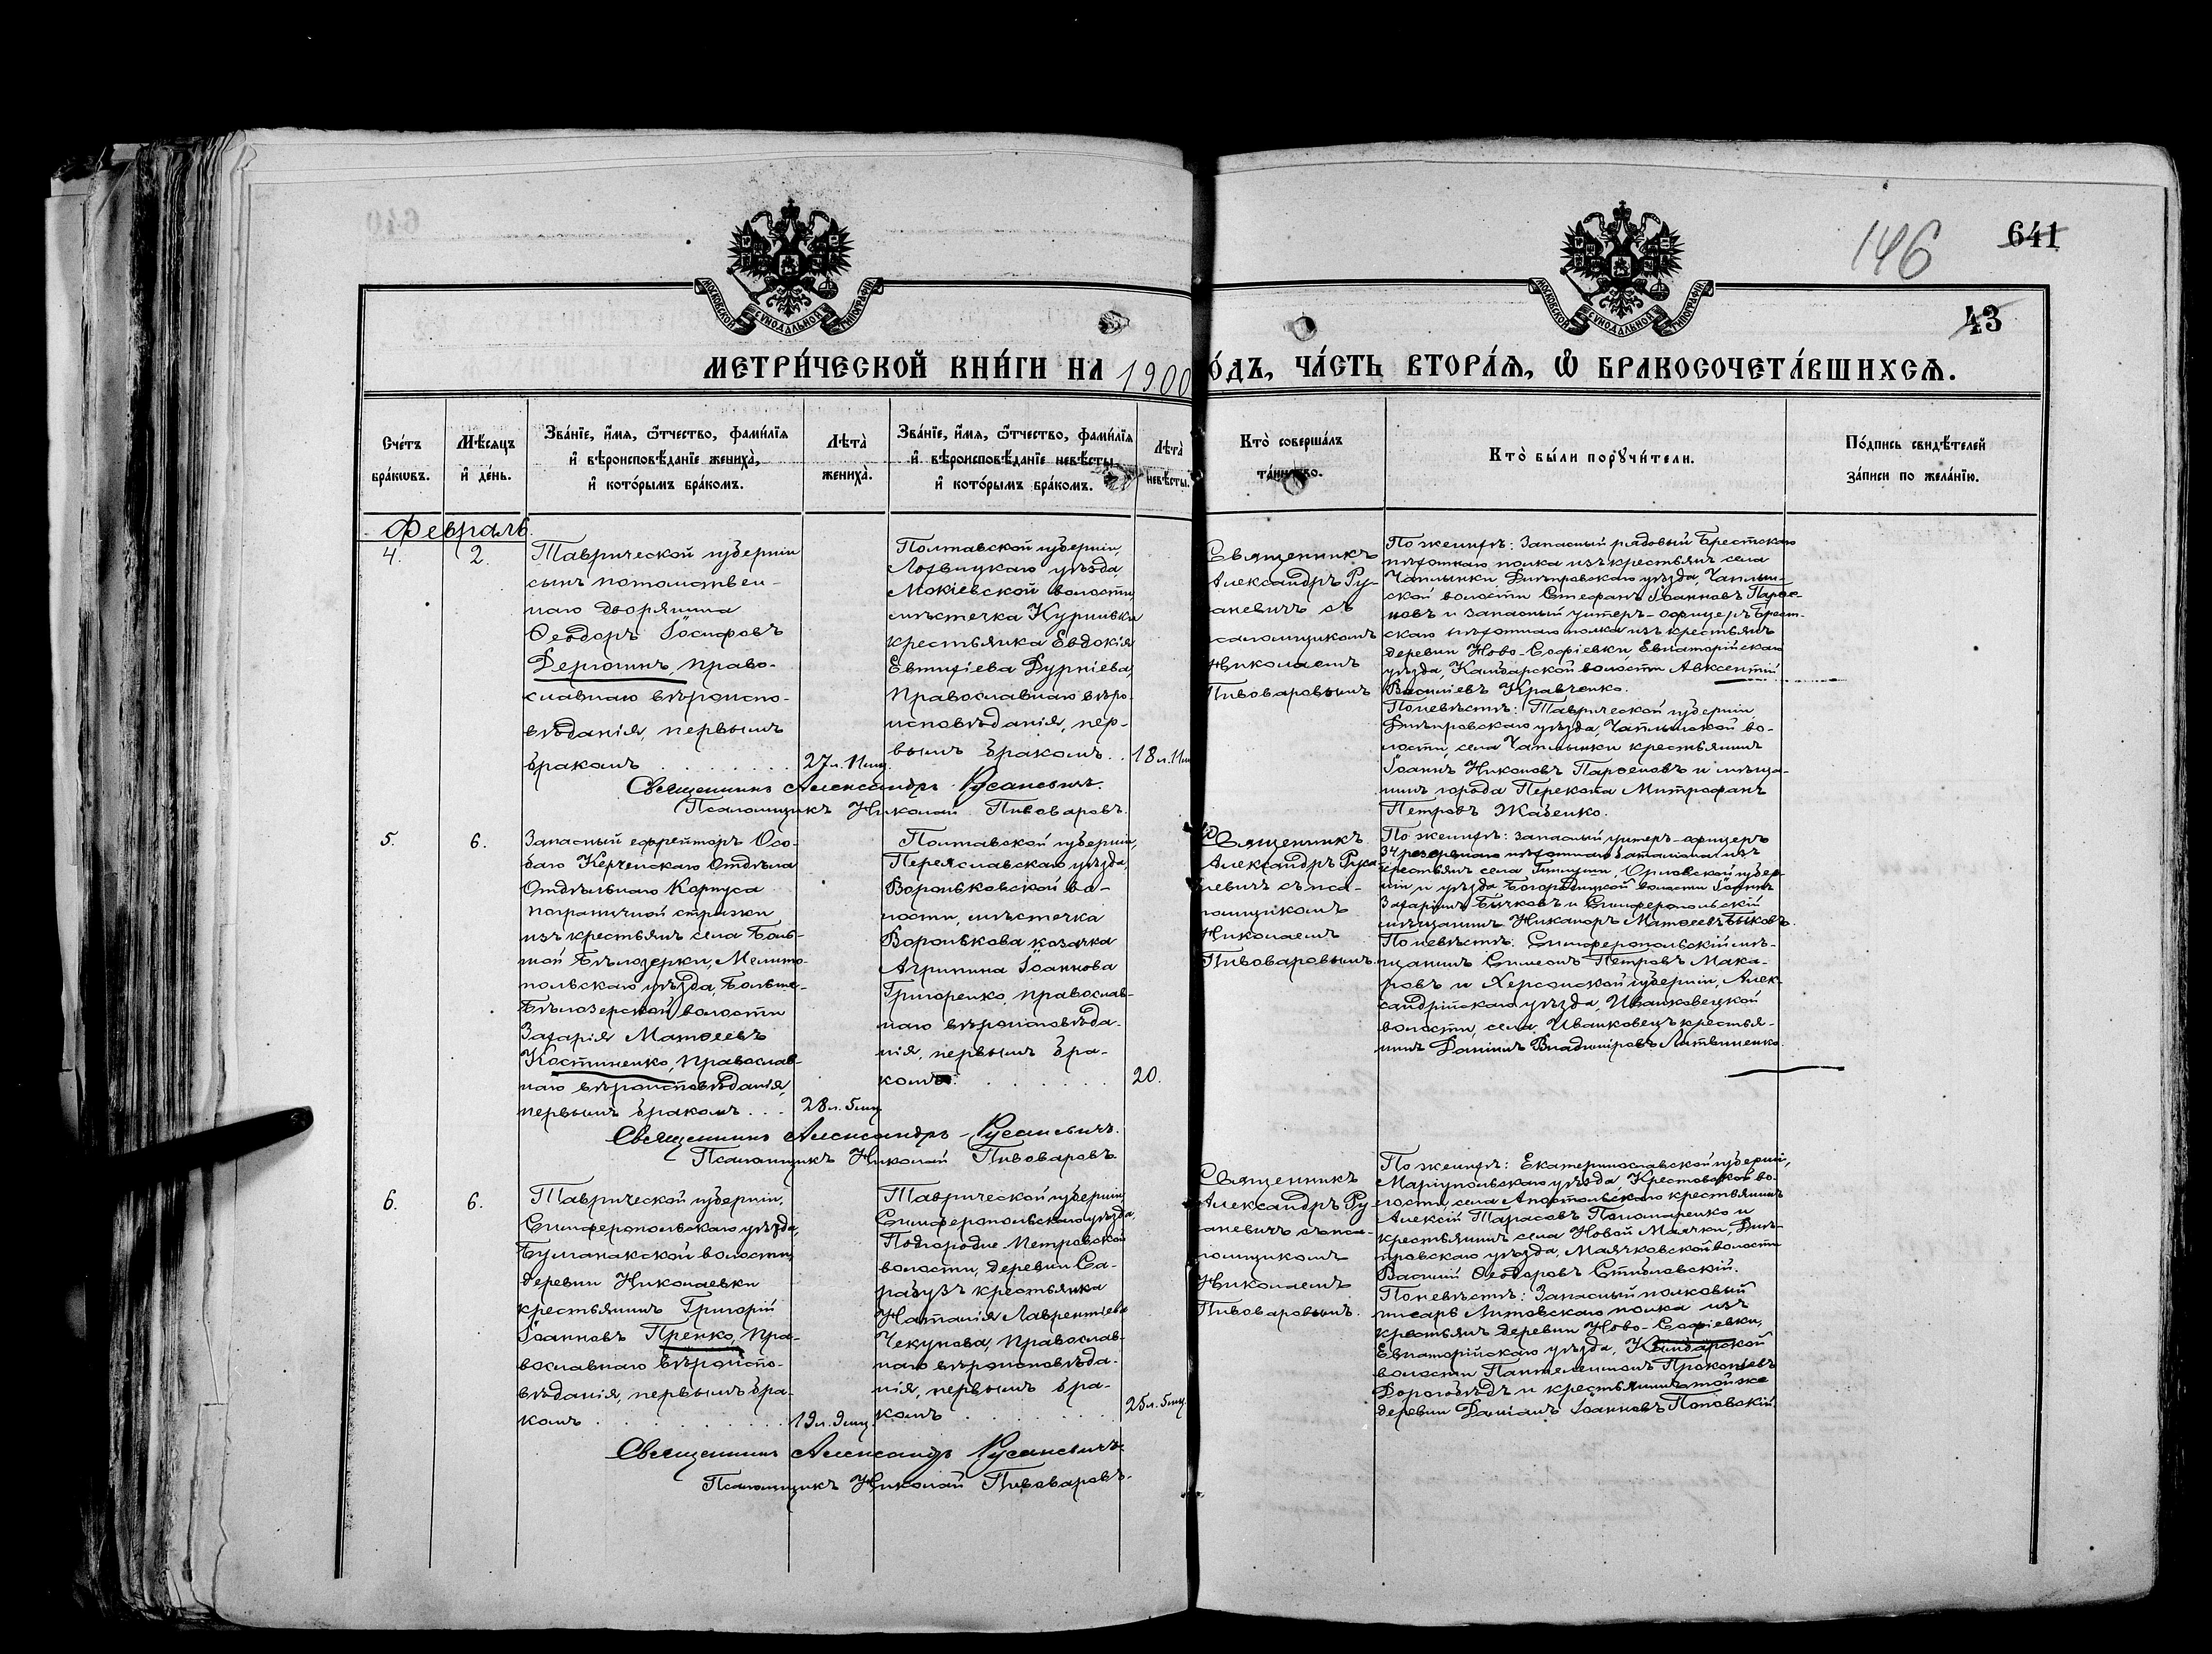 146
641
43
МОСКОВСКОЙ СѴНОДАЛЬНОЙ ТИПОГРАФІИ
МОСКОВСКОЙ СѴНОДАЛЬНОЙ ТИПОГРАФІИ
МЕТРИ́ЧЕСКОЙ КНИ́ГИ НА 1900 О́ДЪ, ЧА́СТЬ ВТОРА́Я, Ѡ БРАКОСОЧЕТА́ВШИХСѦ.
Сче́тъ бра́кѡвъ.
Мѣ́сяцъ и҆ де́нь.
Зва́нїе, и҆́мя, ѻ҆́тчество, фами́лїя и҆ вѣроисповѣ́данїе жениха̀, и҆ кото́рымъ бра́комъ.
Лѣта̀ жениха̀.
Зва́нїе, и҆́мя, ѻ҆́тчество, фами́лїя и҆ вѣроисповѣ́данїе невѣ́сты и҆ кото́рымъ бра́комъ.
Лѣта̀ невѣ́сты.
Кто̀ соверша́лъ та́инство.
Кто̀ бы́ли порꙋчи́тели.
По́дпись свидѣ́телей за́писи по жела́нїю.
Февраль.
4.
2.
Таврической губерніи
сынъ потомствен-
наго дворянина
Ѳеодоръ Іосифовъ
Дерюгинъ, право-
славнаго вѣроиспо-
вѣданія, первымъ
бракомъ
27 л. 11 мц.
Полтавской губерніи,
Лохвицкаго уѣзда,
Мокіевской волости
мѣстечка Куриньки
крестьянка Евдокія
Евтихіева Дурніева,
православнаго вѣро-
исповѣданія, пер-
вымъ бракомъ..
18 л. 11 м
Священникъ
Александръ Ру-
саневичъ съ
псаломщикомъ
Николаемъ
Пивоваровымъ
По женихѣ: Запасный рядовый Брестскаго
пѣхотнаго полка изъ крестьянъ села
Чаплынки, Днѣпровскаго уѣзда, Чаплын-
ской волости Стефанъ Іоанновъ Парѳе-
новъ и запасный унтеръ-офицеръ Брест-
скаго пѣхотнаго полка изъ крестьянъ
деревни Ново-Софіевки Евпаторійскаго
уѣзда, Камбарской волости Авксентій
Василіевъ Кравченко.
По невѣстѣ: Таврической губерніи
Днѣпровскаго уѣзда, Чаплынской во-
лости, села Чаплынки крестьянинъ
Іоаннъ Никоновъ Парѳеновъ и мѣща-
нинъ города Перекопа Митрофанъ
Петровъ Жабенко.
Священникъ Александръ Русаневичъ.
Псаломщикъ Николай Пивоваровъ.
5.
6.
Запасный ефрейторъ Осо-
баго Керченскаго Отдѣла
Отдѣльнаго Корпуса
пограничной стражи
изъ крестьянъ села Боль-
шой Бѣлозерки, Мелито-
польскаго уѣзда, Больше-
Бѣлозерской волости
Захарія Матѳеевъ
Костиненко, православ-
наго вѣроисповѣданія,
первымъ бракомъ...
28 л. 5 мц.
Полтавской губерніи,
Переяславскаго уѣзда,
Вороньковской во-
лости, мѣстечка
Воронькова козачка
Агрипина Іоаннова
Григоренко, православ-
наго вѣроисповѣда-
нія, первымъ бра-
комъ.
20.
Священникъ
Александръ Руса-
невичъ съ пса-
ломщикомъ
Николаемъ
Пивоваровымъ.
По женихѣ: запасный унтеръ-офицеръ
34 резервнаго пѣхотнаго баталіона изъ
крестьянъ села Орловской губер-
ніи и уѣзда, Богородицкой волости Іоаннъ
Захаріинъ Бычковъ и Симферопольскій
мѣщанинъ Никаноръ Матѳеевъ Быковъ.
По невѣстѣ: Симферопольскій мѣ-
щанинъ Симеонъ Петровъ Мака-
ровъ и Херсонской губерніи, Алек-
сандрійскаго уѣзда, Иванковецкой
волости, села Иванковецъ крестья-
нинъ Даніилъ Владиміровъ Литвиненко.
Священникъ Александръ Русаневичъ.
Псаломщикъ Николай Пивоваровъ.
6.
6.
Таврической губерніи,
Симферопольскаго уѣзда,
Булганакской волости,
деревни Николаевки
крестьянинъ Григорій
Іоанновъ Пренко, пра-
вославнаго вѣроиспо-
вѣданія, первымъ бра-
комъ
19 л. 9 мц.
Таврической губерніи,
Симферопольскаго уѣзда,
Подгородне-Петровской
волости, деревни Са-
рабузъ крестьянка
Наталія Лаврентіева
Чекунова, православ-
наго вѣроисповѣда-
нія, первымъ бра-
комъ
25 л. 5 мц.
Священникъ
Александръ Ру-
саневичъ съ пса-
ломщикомъ
Николаемъ
Пивоваровымъ.
По женихѣ: Екатеринославской губерніи,
Маріупольскаго уѣзда, Крестовской во-
лости, села Апостольскаго крестьянинъ
Алексій Тарасовъ Пономаренко и
крестьянинъ села Новой Маячки, Днѣ-
провскаго уѣзда, Маячковской волости
Василій Ѳеодоровъ Стійловскій.
По невѣстѣ: Запасный полковый
писарь Литовскаго полка изъ
крестьянъ деревни Ново-Софіевки,
Евпаторійскаго уѣзда, Камбарской
волости Пантелеимонъ Прокопіевъ
Дорогобѣдъ и крестьянинъ той же
деревни Даміанъ Іоанновъ Поповскій.
Священникъ Александръ Русаневичъ
Псаломщикъ Николай Пивоваровъ.